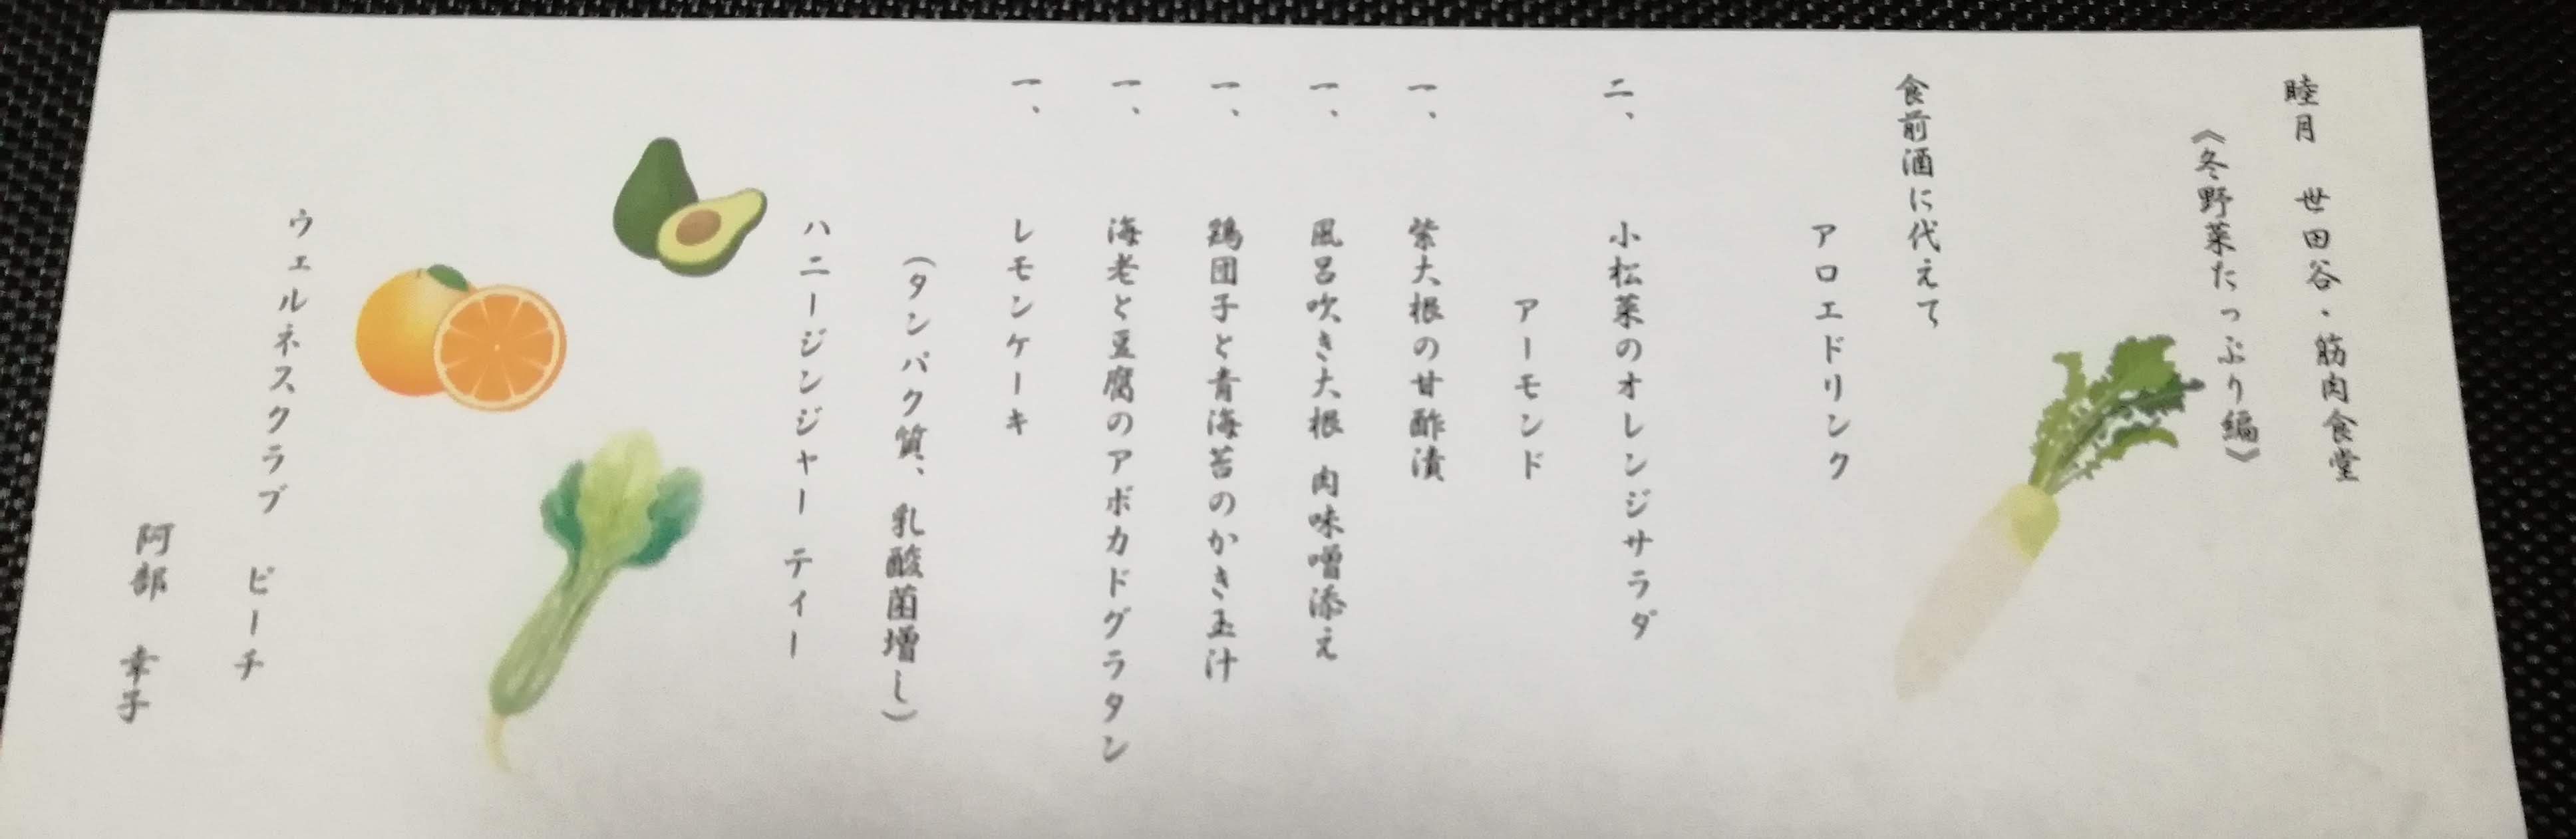 睦月 世田谷・筋肉食堂
《冬野菜たっぷり編》
食前酒に代えて
アロエドリンク
二、 小松菜のオレンジサラダ
アーモンド
一、 紫大根の甘酢漬
一、 風呂吹き大根 肉味噌添え
一、 鶏団子と青海苔のかき玉汁
一、 海老と豆腐のアボカドグラタン
一、 レモンケーキ
(タンパク質、乳酸菌増し)
ハニージンジャー ティー
ウェルネスクラブ ピーチ
阿部 幸子